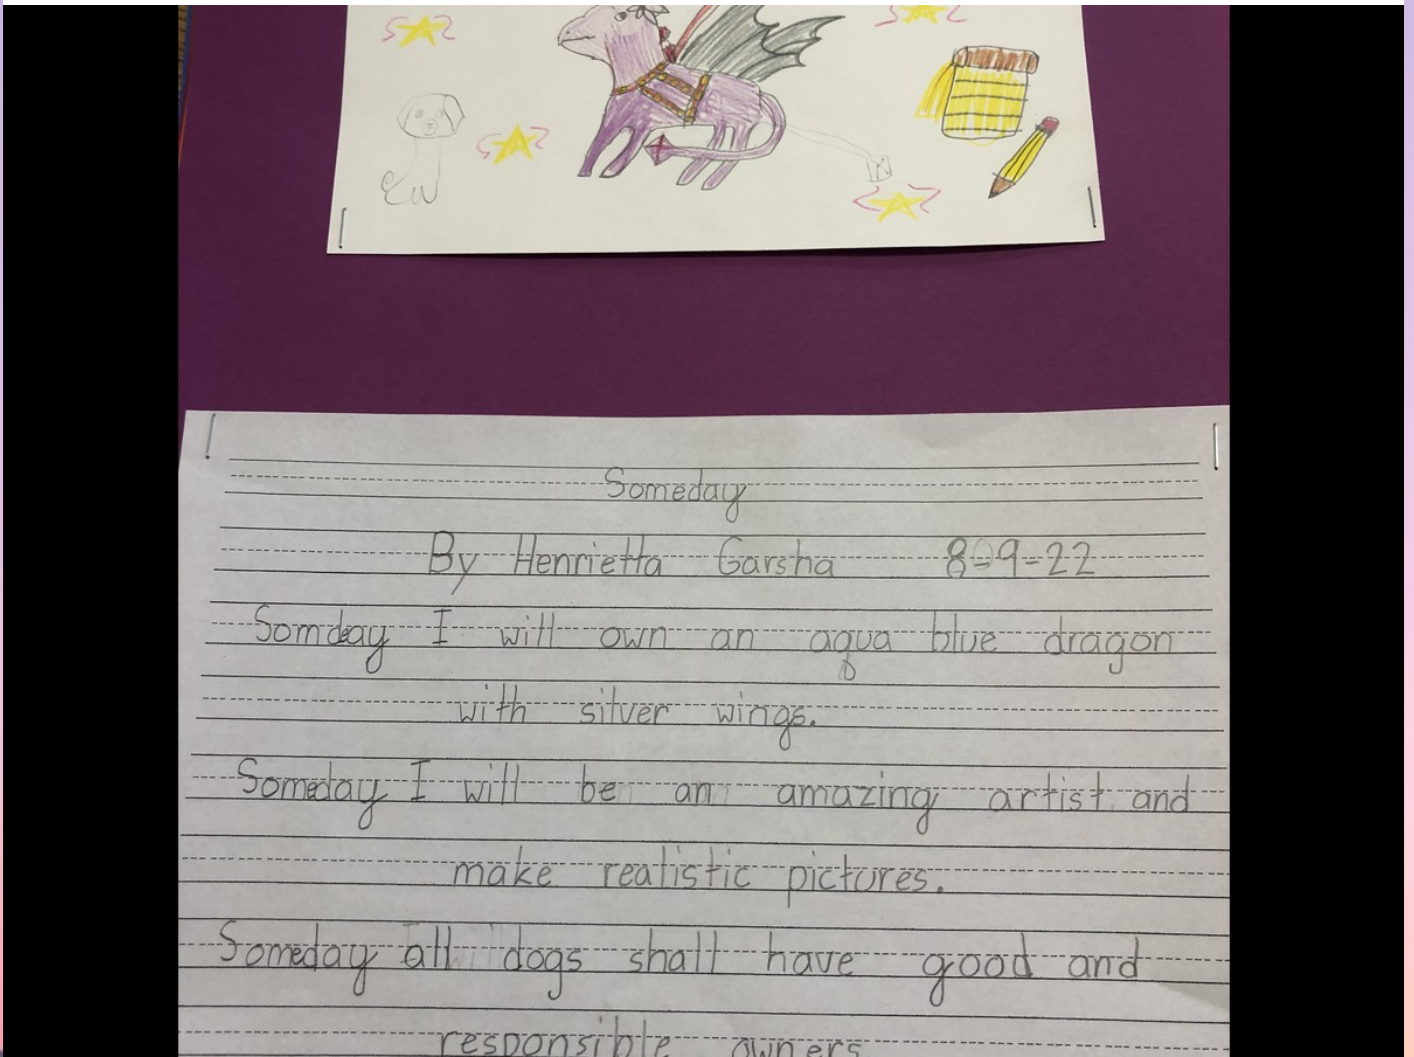 Someday
By Henrietta Garsha 8-9-22
Somdeay I will own an aqua blue dragon
with silver wings.
Someday I will be an amazing artist and
make realistic pictures.
Someday all dogs shall have good and
responsible owners